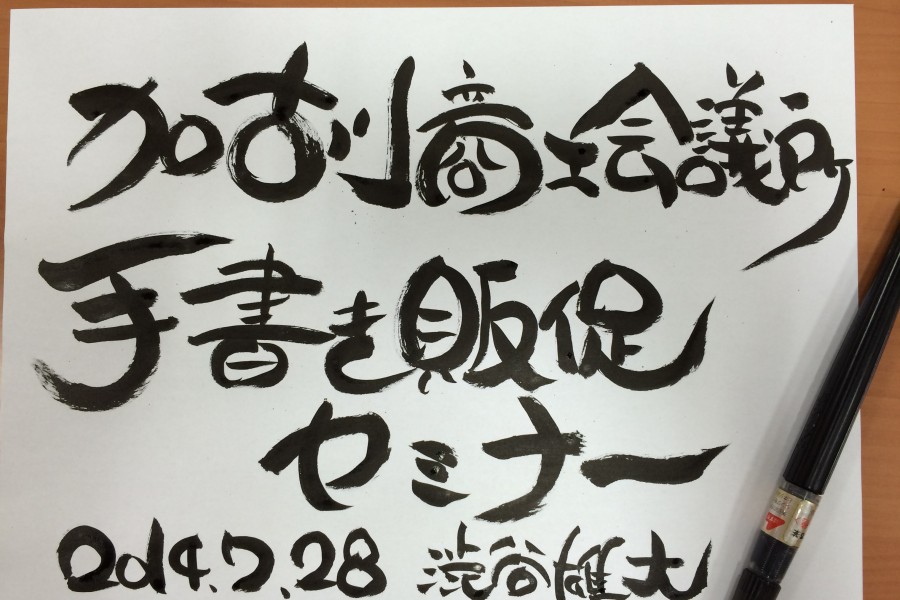 加古川商工会議所
手書き販促
セミナー
2014.7.28 渋谷雄大